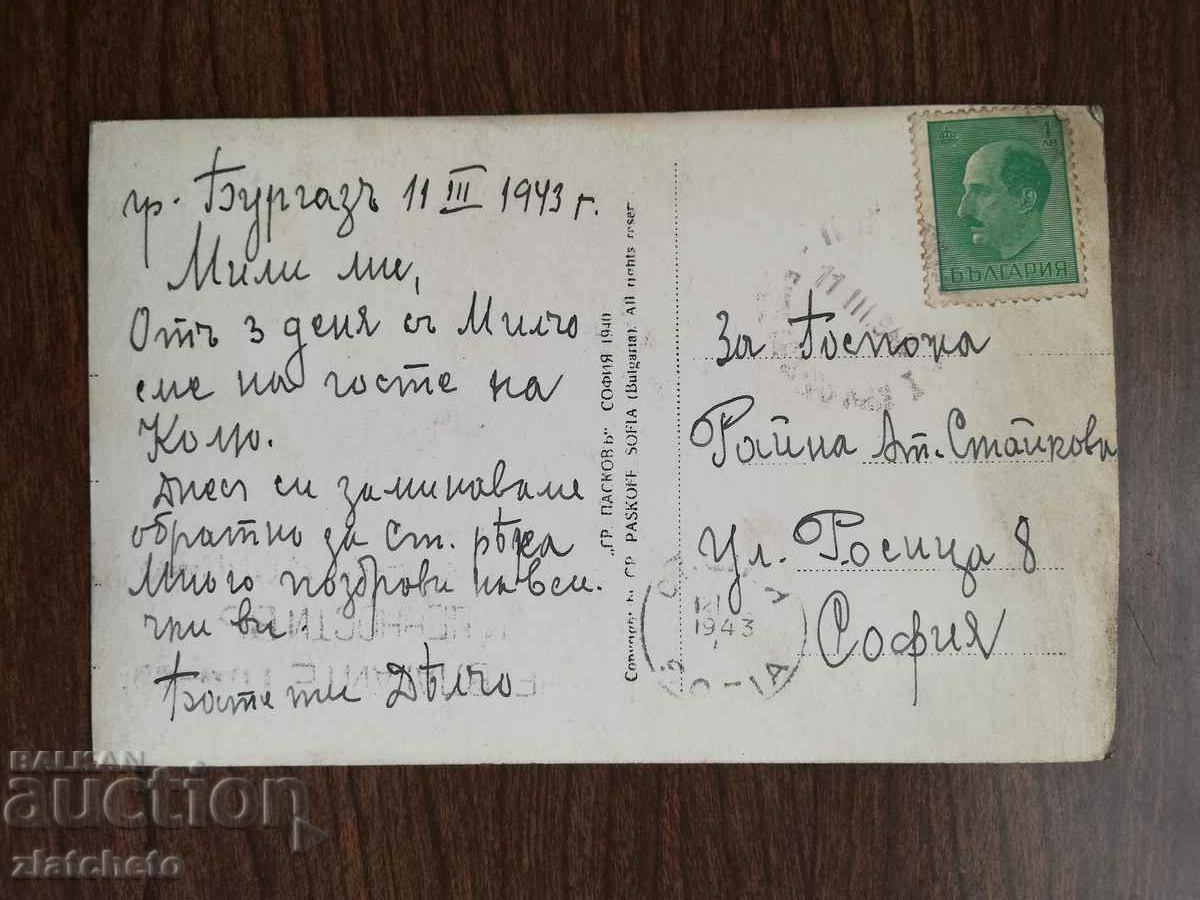 гр. Бургазъ 11 III 1943 г.
Мили ми,
Отъ 3 деня съ Милчо
сме на госте на
Колю.
Днесъ си заминаваме
обратно за Ст. рѣка
Много поздрови на вси.
чки ви.
Дѣлчо
"ГР. ПАСКОВЪ" СОФИЯ 1940
GR. PASKOFF SOFIA (Bulgaria). All rights reser.
1 ЛВ
БЪЛГАРИЯ
11 III
За Госпожа
Райна Ат. Стайкова
Ул. Росица 8
София
1943
BALKAN
auction
zlatcheto